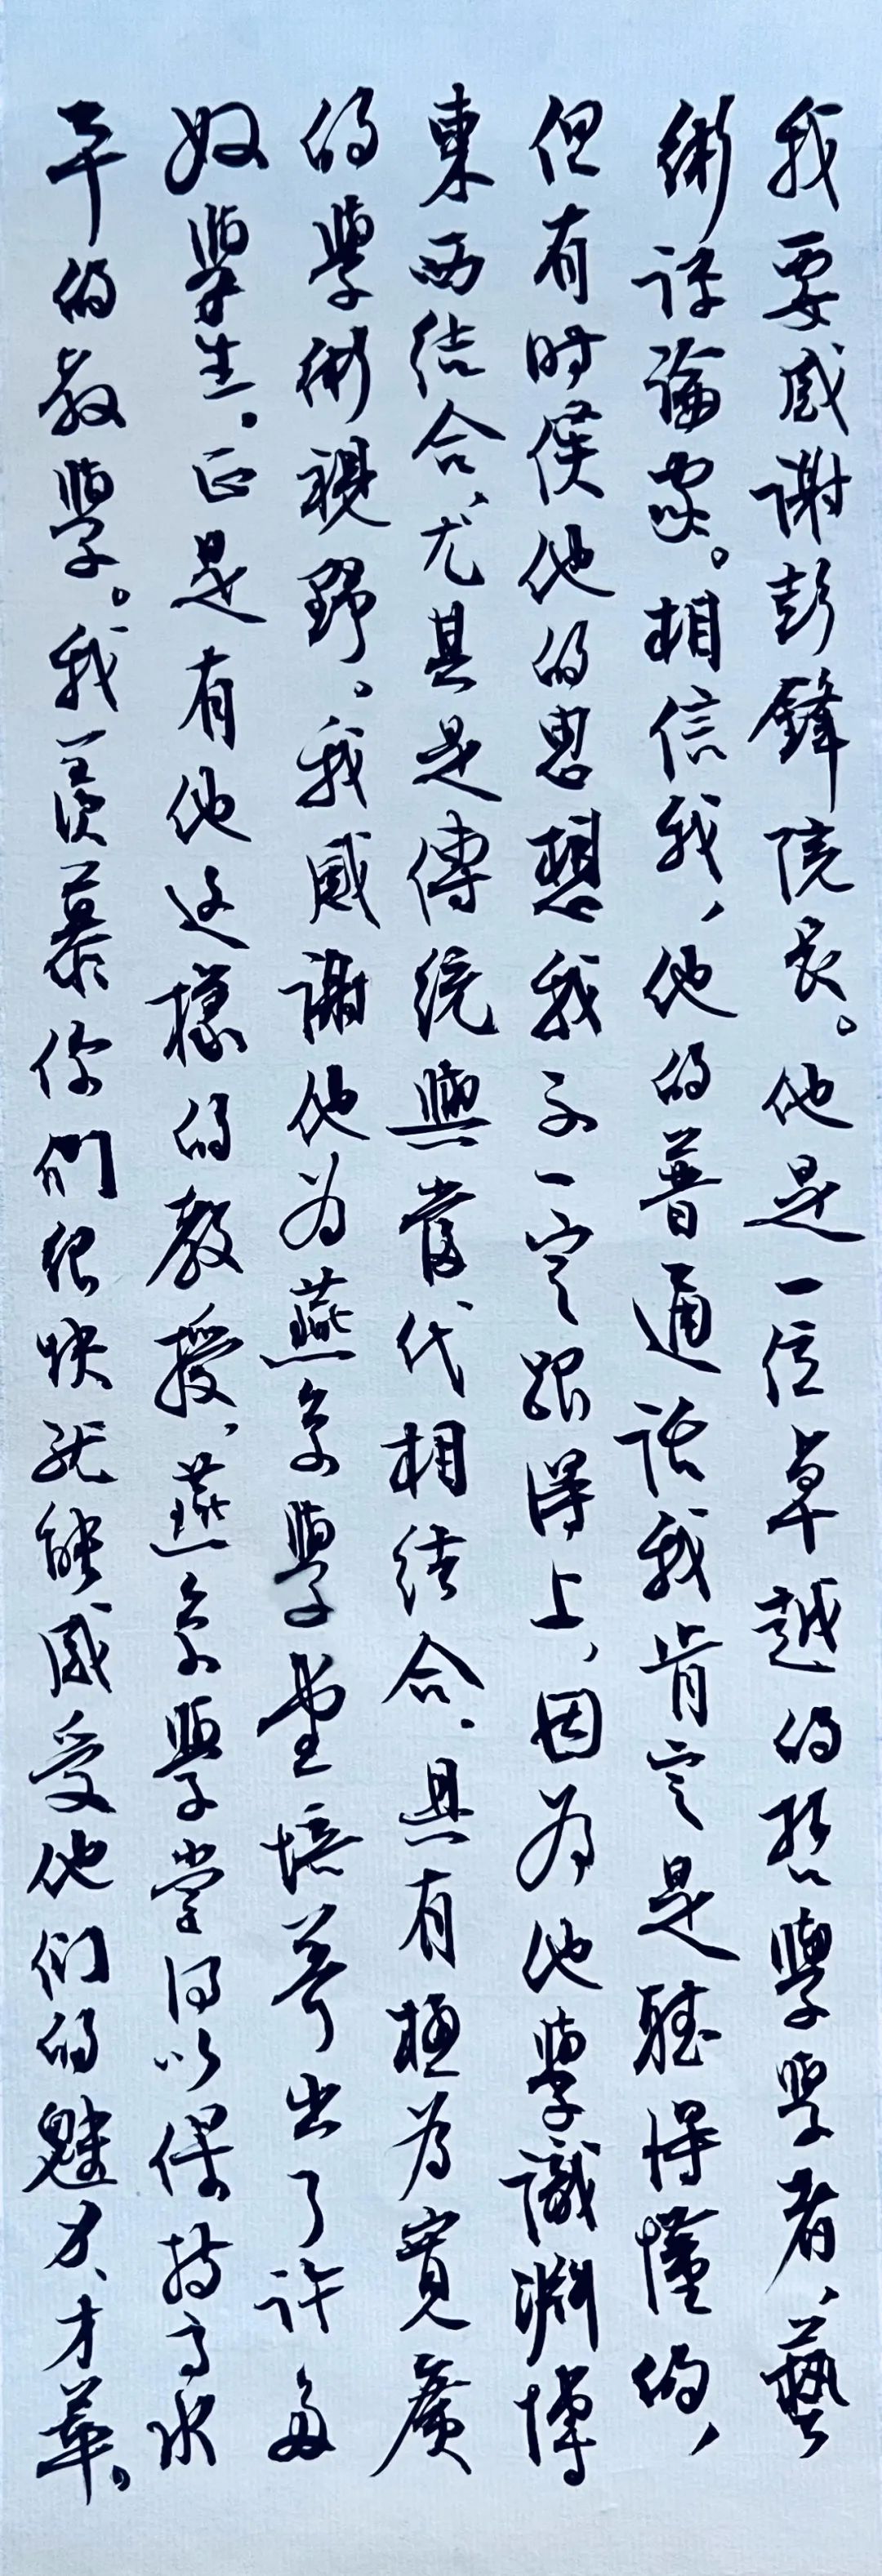 我要感谢彭鋒院长。他是一位卓越的哲學學者、藝
術评論家。相信我，他的普通话我肯定是聽得懂的，
但有时候他的思想我不一定跟得上、因为他學識淵博
東西结合、尤其是傳统與當代相结合、具有極为寬廣
的學術視野。我感謝他为燕京學堂培养出了许多
好學生。正是有他这樣的教授、燕京學堂得以保持高水
平的教學。我羨慕你們很快就能感受他们的魅力、才華。